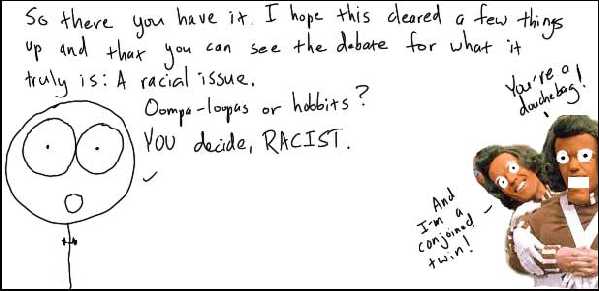 So there you have it. I hope this cleared a few things
up and that you can see the debate for what it
truly is: A racial issue.
Oompa-loopas or hobbits?
YOU decide, RACIST.
You're a
douchebag!
And
I'm a
conjoined
twin!